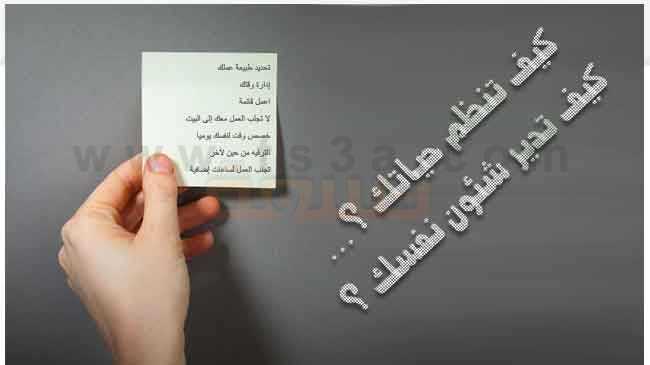 كيف تنظم حياتك ؟ ...
كيف تدير شئون نفسك ؟
تحديد طبيعة عملك
إدارة وقتك
اعمل قائمة
لا تجلب العمل معك إلى البيت
خصص وقت لنفسك يوميا
الترفيه من حين لآخر
تجنب العمل لساعات إضافية